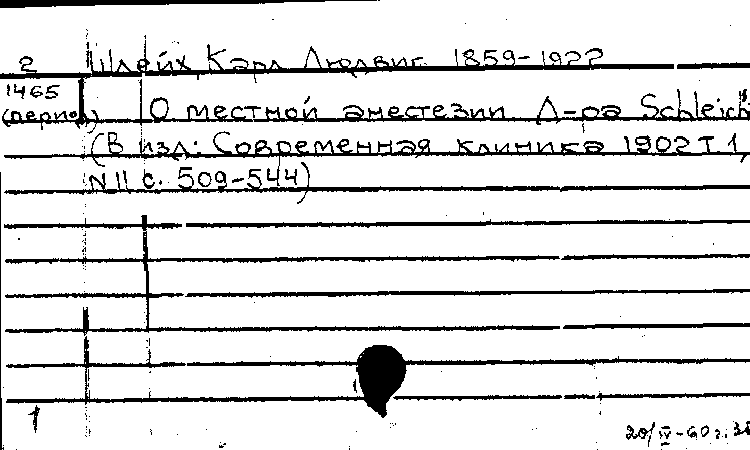 2 Шлейх, Карл Людвиг. 1859-1922
1465
(период) О местной анестезии Д-ра Schleich
(В изд: Современная клиника 1902 Т. 1,
N 11 с. 509-544)
1
20/IV-60 г.